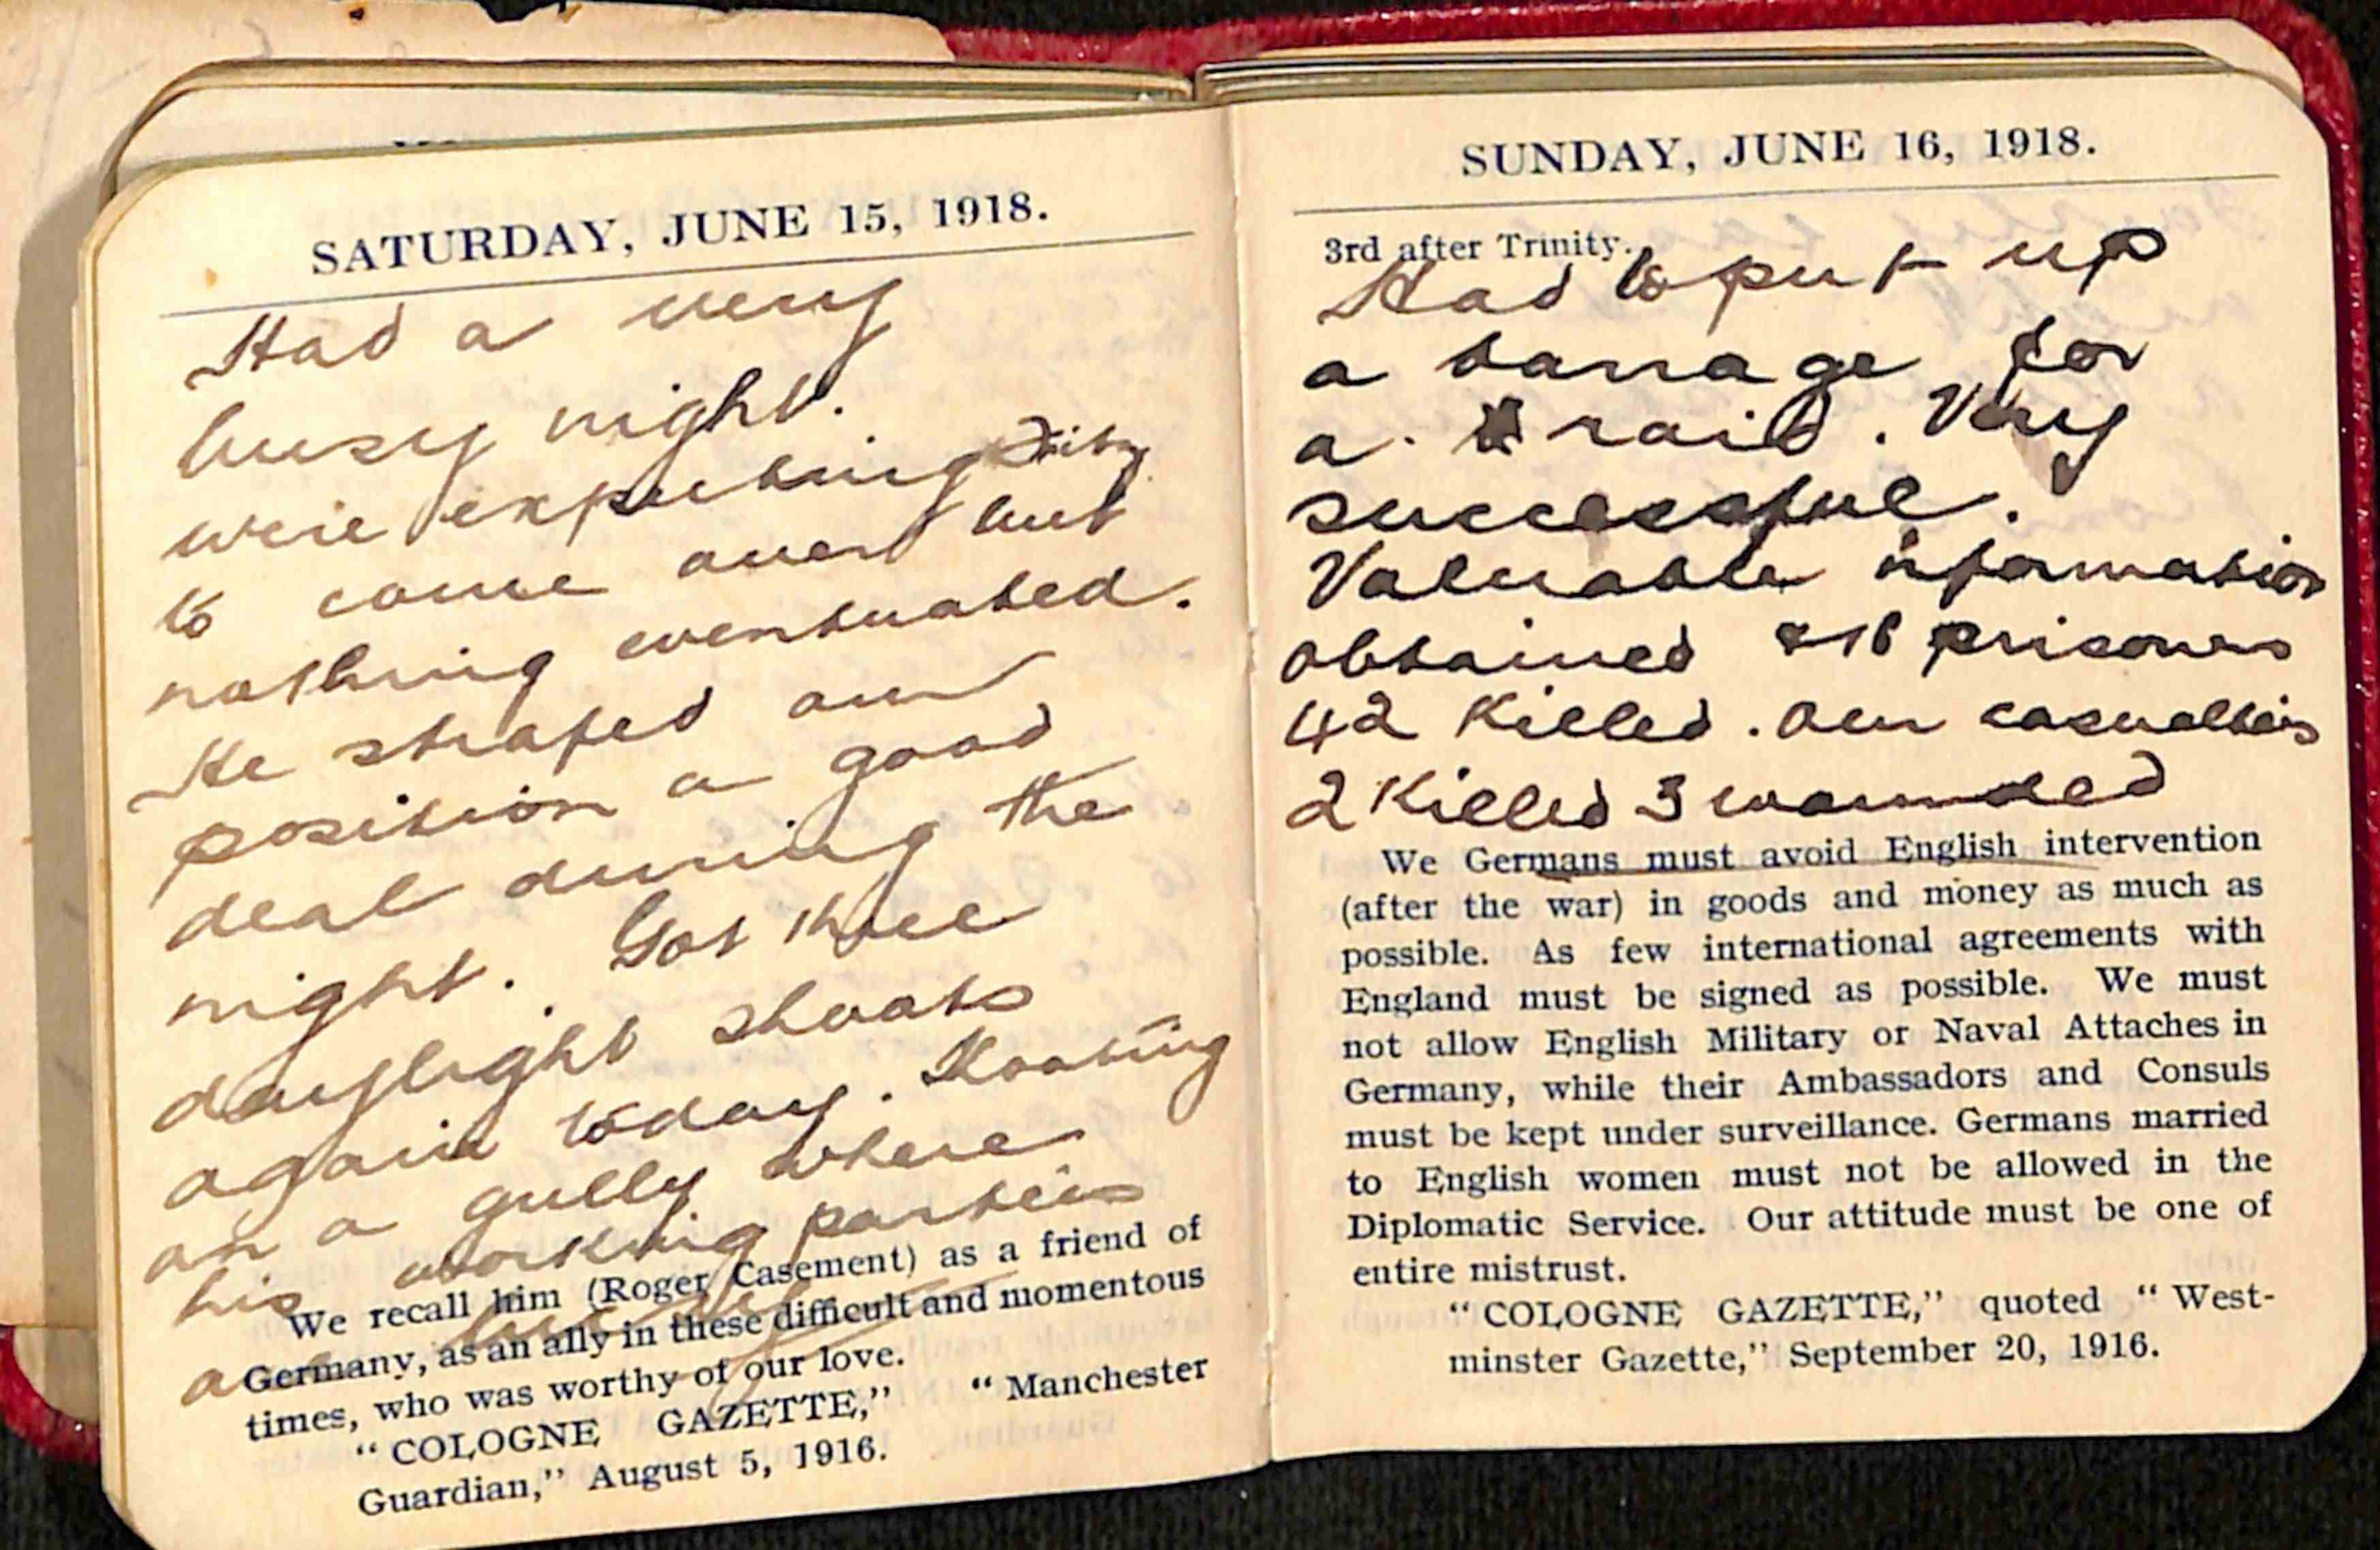 SATURDAY, JUNE 15, 1918.
Had a very
busy night.
were expecting Fritz
to come over but
nothing eventuated.
He strafed our
position a good
deal during the
night. Got three
daylight shoots
again today.
on a gully where
his working parties
a busy
We recall him (Roger Casement) as a friend of
Germany, as an ally in these difficult and momentous
times, who was worthy of our love.
“COLOGNE GAZETTE,” “Manchester
Guardian,” August 5, 1916.
SUNDAY, JUNE 16, 1918.
3rd after Trinity.
Had to put up
a barrage for
a raid. Very
successful.
Valuable information
obtained & 18 prisoners
42 Killed. Our casualties
2 Killed 3 wounded
We Germans must avoid English intervention
(after the war) in goods and money as much as
possible. As few international agreements with
England must be signed as possible. We must
not allow English Military or Naval Attaches in
Germany, while their Ambassadors and Consuls
must be kept under surveillance. Germans married
to English women must not be allowed in the
Diplomatic Service. Our attitude must be one of
entire mistrust.
“COLOGNE GAZETTE,” quoted “West-
minster Gazette,” September 20, 1916.